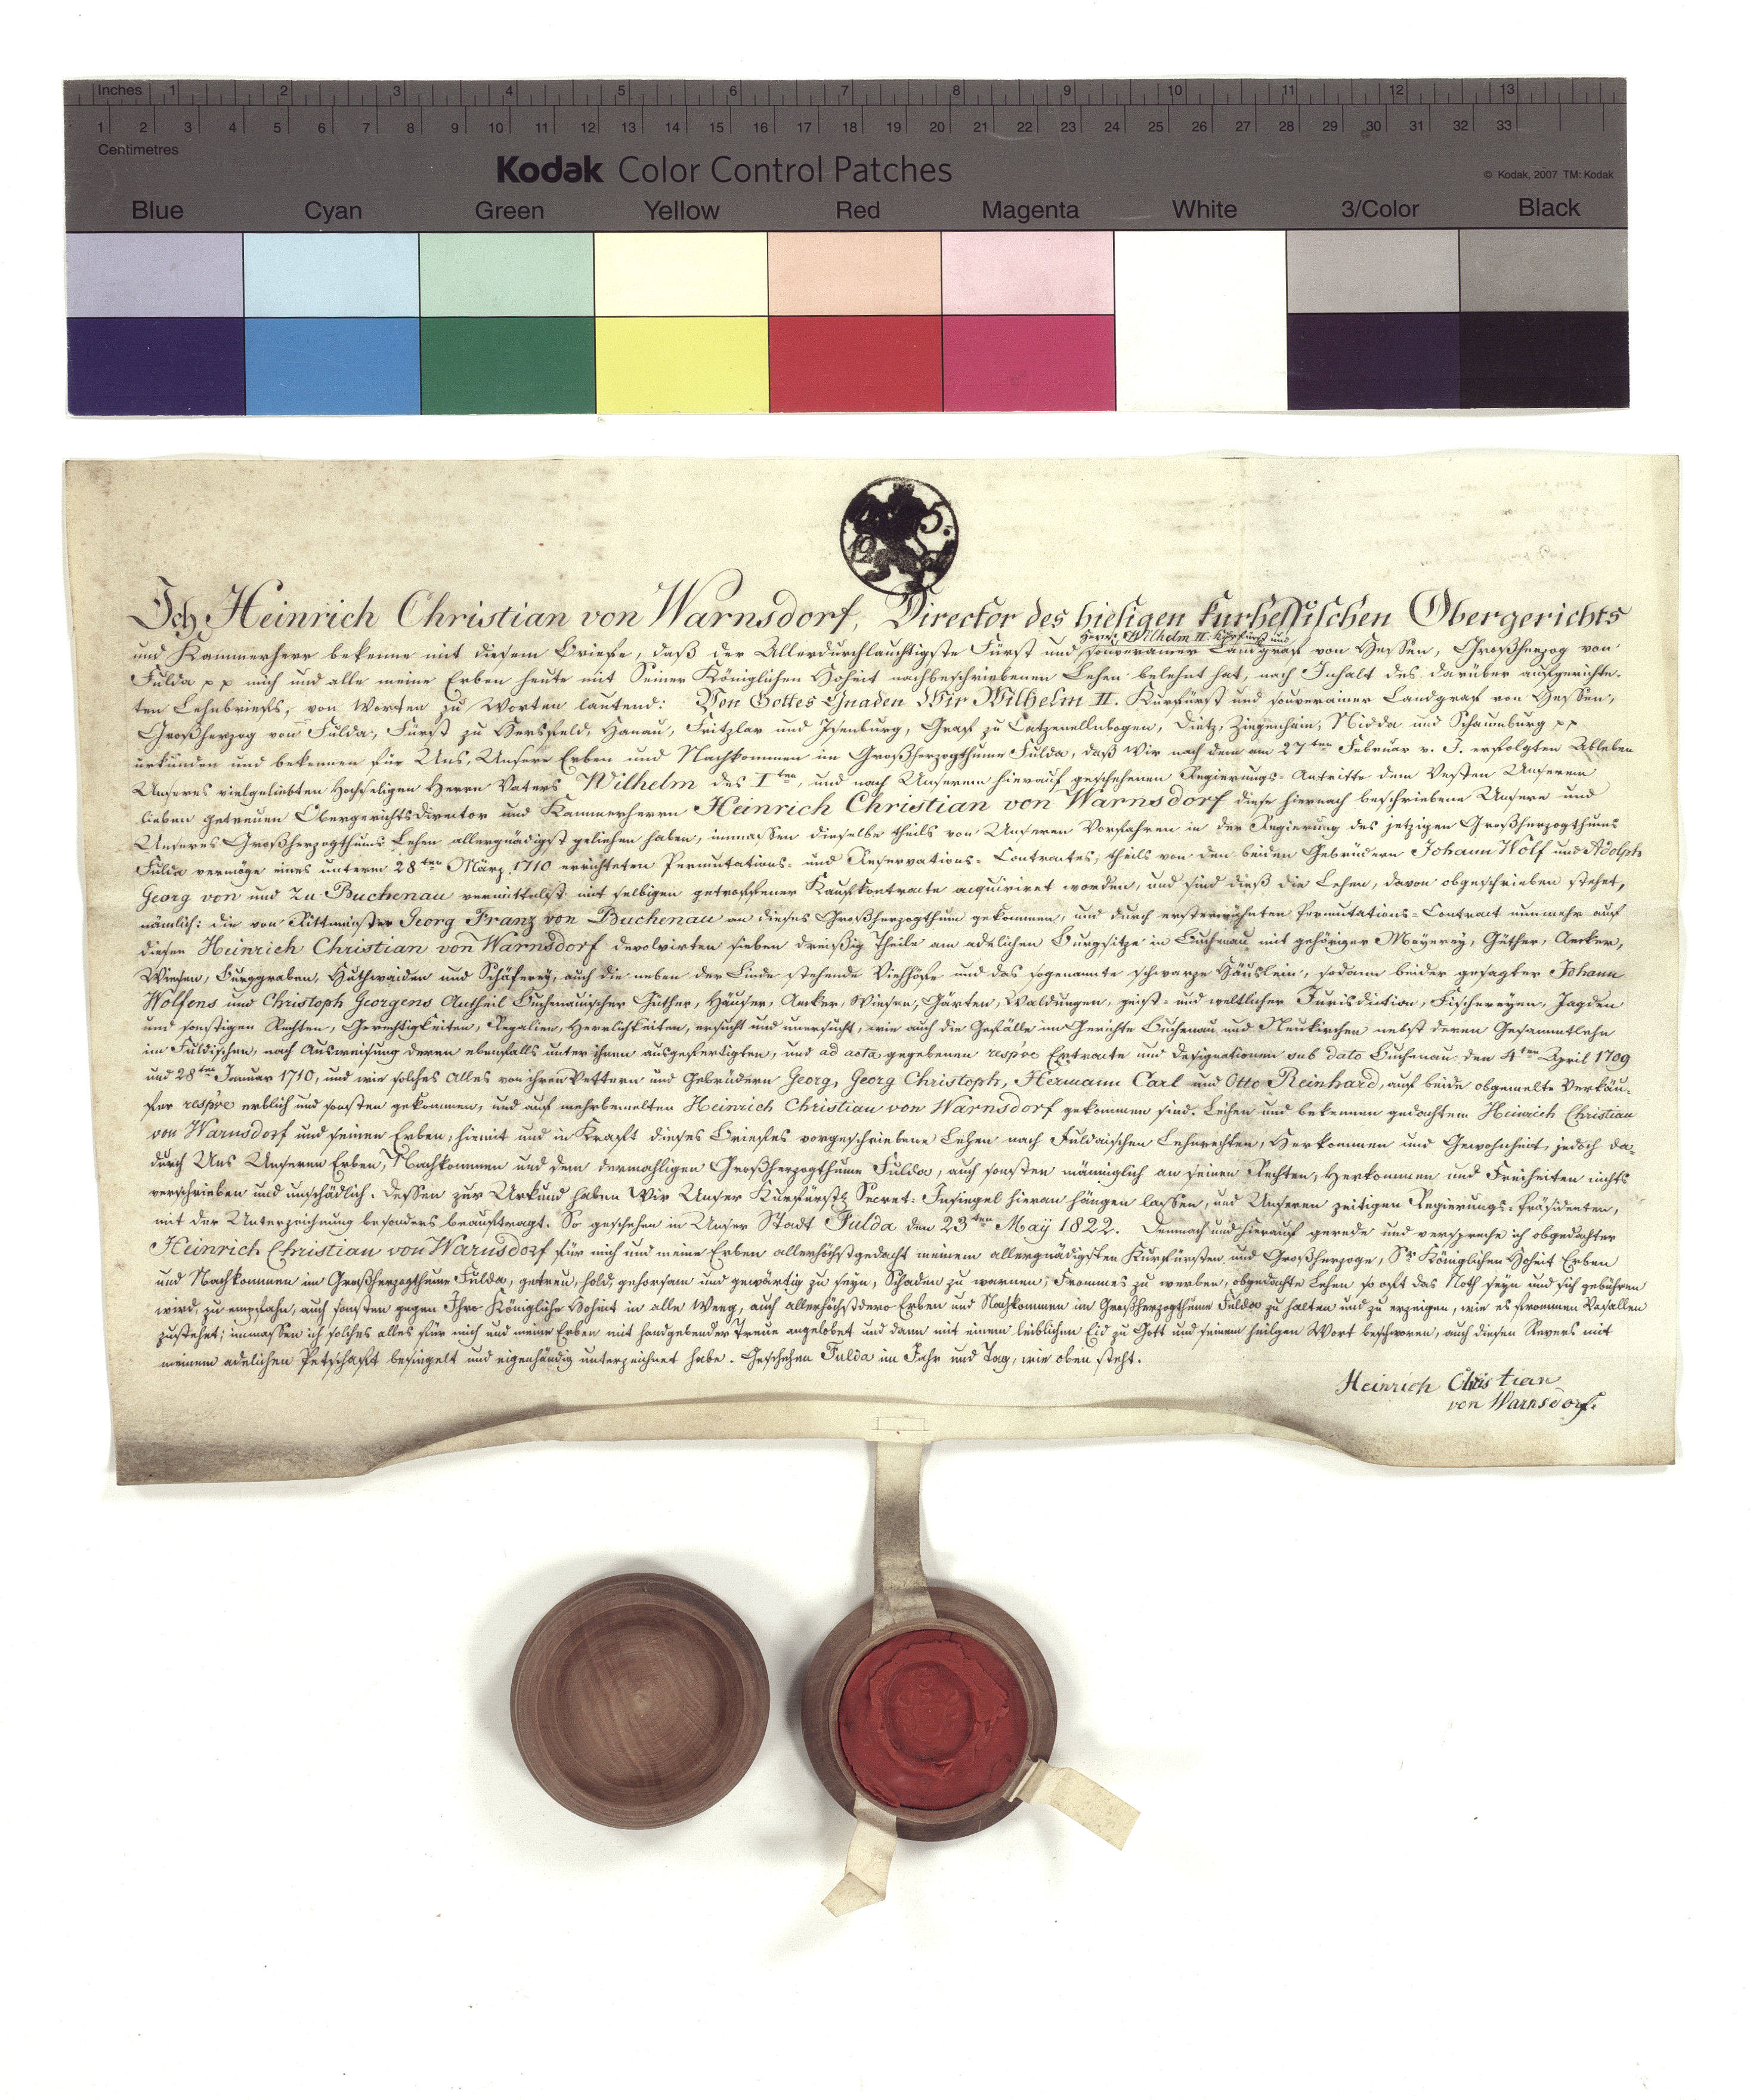 Inches 1 2 3 4 5 6 7 8 9 10 11 12 13
1 2 3 4 5 6 7 8 9 10 11 12 13 14 15 16 17 18 19 20 21 22 23 24 25 26 27 28 29 30 31 32 33
Centimetres
Kodak Color Control Patches
© Kodak, 2007 TM: Kodak
Blue Cyan Green Yellow Red Magenta White 3/Color Black
Ich Heinrich Christian von Warnsdorf, Director des hiesigen kurhessischen Obergerichts
Herr Wilhelm II. Kurfürst und
und Kammerherr bekenne mit diesem Briefe, daß der Allerdurchlauchtigste Fürst und souverainer Landgraf von Hessen, Großherzog von
Fulda pp mich und alle meine Erben heute mit Seiner Königlichen Hoheit nachbeschriebenen Lehen belehnt hat, nach Inhalt des darüber ausgerichte-
ten Lehnbriefs, von Worten zu Worten lautend: Von Gottes Gnaden Wir Wilhelm II. Kurfürst und souverainer Landgraf von Hessen,
Großherzog von Fulda, Fürst zu Hersfeld, Hanau, Fritzlar und Isenburg, Graf zu Catzenellnbogen, Dietz, Ziegenhain, Nidda und Schaumburg pp
urkunden und bekennen für Uns, Unsere Erben und Nachkommen im Großherzogthume Fulda, daß Wir nach dem am 27ten Februar v. J. erfolgten Ableben
Unseres vielgeliebten Hochseligen Herrn Vaters Wilhelm des Iten, und nach Unserem hierauf geschehenen Regierungs-Antritte dem Vesten Unserem
lieben getreuen Obergerichtsdirector und Kammerherrn Heinrich Christian von Warnsdorf diese hiernach beschriebene Unsere und
Unseres Großherzogthums Lehen allergnädigst geliehen haben, inmassen dieselbe theils von Unseren Vorfahren in der Regierung des jetzigen Großherzogthums
Fulda vermöge eines unterm 28ten März 1710 errichteten Permutations- und Reservations-Contractes, theils von den beiden Gebrüdern Johann Wolf und Adolph
Georg von und zu Buchenau vermittelst mit selbigen getroffener Kaufkontracte acquiriret worden, und sind dieß die Lehen, davon obgeschrieben stehet,
nämlich: die von Rittmeister Georg Franz von Buchenau an dieses Großherzogthum gekommen, und durch ersterwähnten Permutations-Contract nunmehr auf
diesen Heinrich Christian von Warnsdorf devolvirten sieben dreißig Theile am adelichen Burgsitze in Buchenau mit gehöriger Meyerey, Güther, Aecker,
Wiesen, Burggraben, Huthwaiden und Schäferey, auch die neben der Linde stehende Viehhöfe und das sogenannte schwarze Häuslein, sodann beider gesagter Johann
Wolfens und Christoph Georgens Antheil Buchenauischer Güther, Häuser, Aecker, Wiesen, Gärten, Waldungen, geist- und weltlicher Jurisdiction, Fischereyen, Jagden
und sonstigen Rechten, Gerechtigkeiten, Regalien, Herrlichkeiten, ersucht und unersucht, wie auch die Gefälle im Gerichte Buchenau und Neukirchen nebst deren Gesammtlehn
im Fuldischen, nach Ausweisung deren ebenfalls unter ihnen ausgefertigten, und ad acta gegebenen respve Extracte und Designationen sub dato Buchenau den 4ten April 1709
und 28ten Januar 1710, und wie solches Alles von ihren Vettern und Gebrüdern Georg, Georg Christoph, Hermann Carl und Otto Reinhard, auf beide obgemelte Verkäu-
fer respve erblich und sonsten gekommen, und auf mehrbemelten Heinrich Christian von Warnsdorf gekommen sind. Leihen und bekennen gedachtem Heinrich Christian
von Warnsdorf und seinen Erben, hiemit und in Kraft dieses Briefes vorgeschriebene Lehen nach Fuldaischen Lehnrechten, Herkommen und Gewohnheit, jedoch da-
durch Uns Unseren Erben, Nachkommen und dem dermahligen Großherzogthume Fulda, auch sonsten männiglich an seinen Rechten, Herkommen und Freiheiten nichts
verschrieben und unschädlich. Dessen zur Urkund haben Wir Unser Kurfürstl. Secret-Insiegel hieran hängen lassen, und Unseren zeitigen Regierungs-Präsidenten,
mit der Unterzeichnung besonders beauftragt. So geschehen in Unser Stadt Fulda den 23ten May 1822. Demnach und hierauf gerede und verspreche ich obgedachter
Heinrich Christian von Warnsdorf für mich und meine Erben allerhöchstgedacht meinem allergnädigsten Kurfürsten und Großherzoge, Sr Königlichen Hoheit Erben
und Nachkommen im Großherzogthume Fulda, getreu, hold, gehorsam und gewärtig zu seyn, Schaden zu warnen, Frommes zu werben, obgedachte Lehen so oft das Noth seyn und sich gebühren
wird, zu empfahn, auch sonsten gegen Ihro Königliche Hoheit in alle Weeg, auch allerhöchstdero Erben und Nachkommen im Großherzogthume Fulda zu halten und zu erzeigen, wie es frommen Vasallen
zustehet; inmassen ich solches alles für mich und meine Erben mit handgebender Treue angelobet und dann mit einem leiblichen Eid zu Gott und seinem heilgen Wort beschworen, auch diesen Revers mit
meinem adelichen Petschaft besiegelt und eigenhändig unterzeichnet habe. Geschehen Fulda im Jahr und Tag, wie oben steht.
Heinrich Christian
von Warnsdorf.